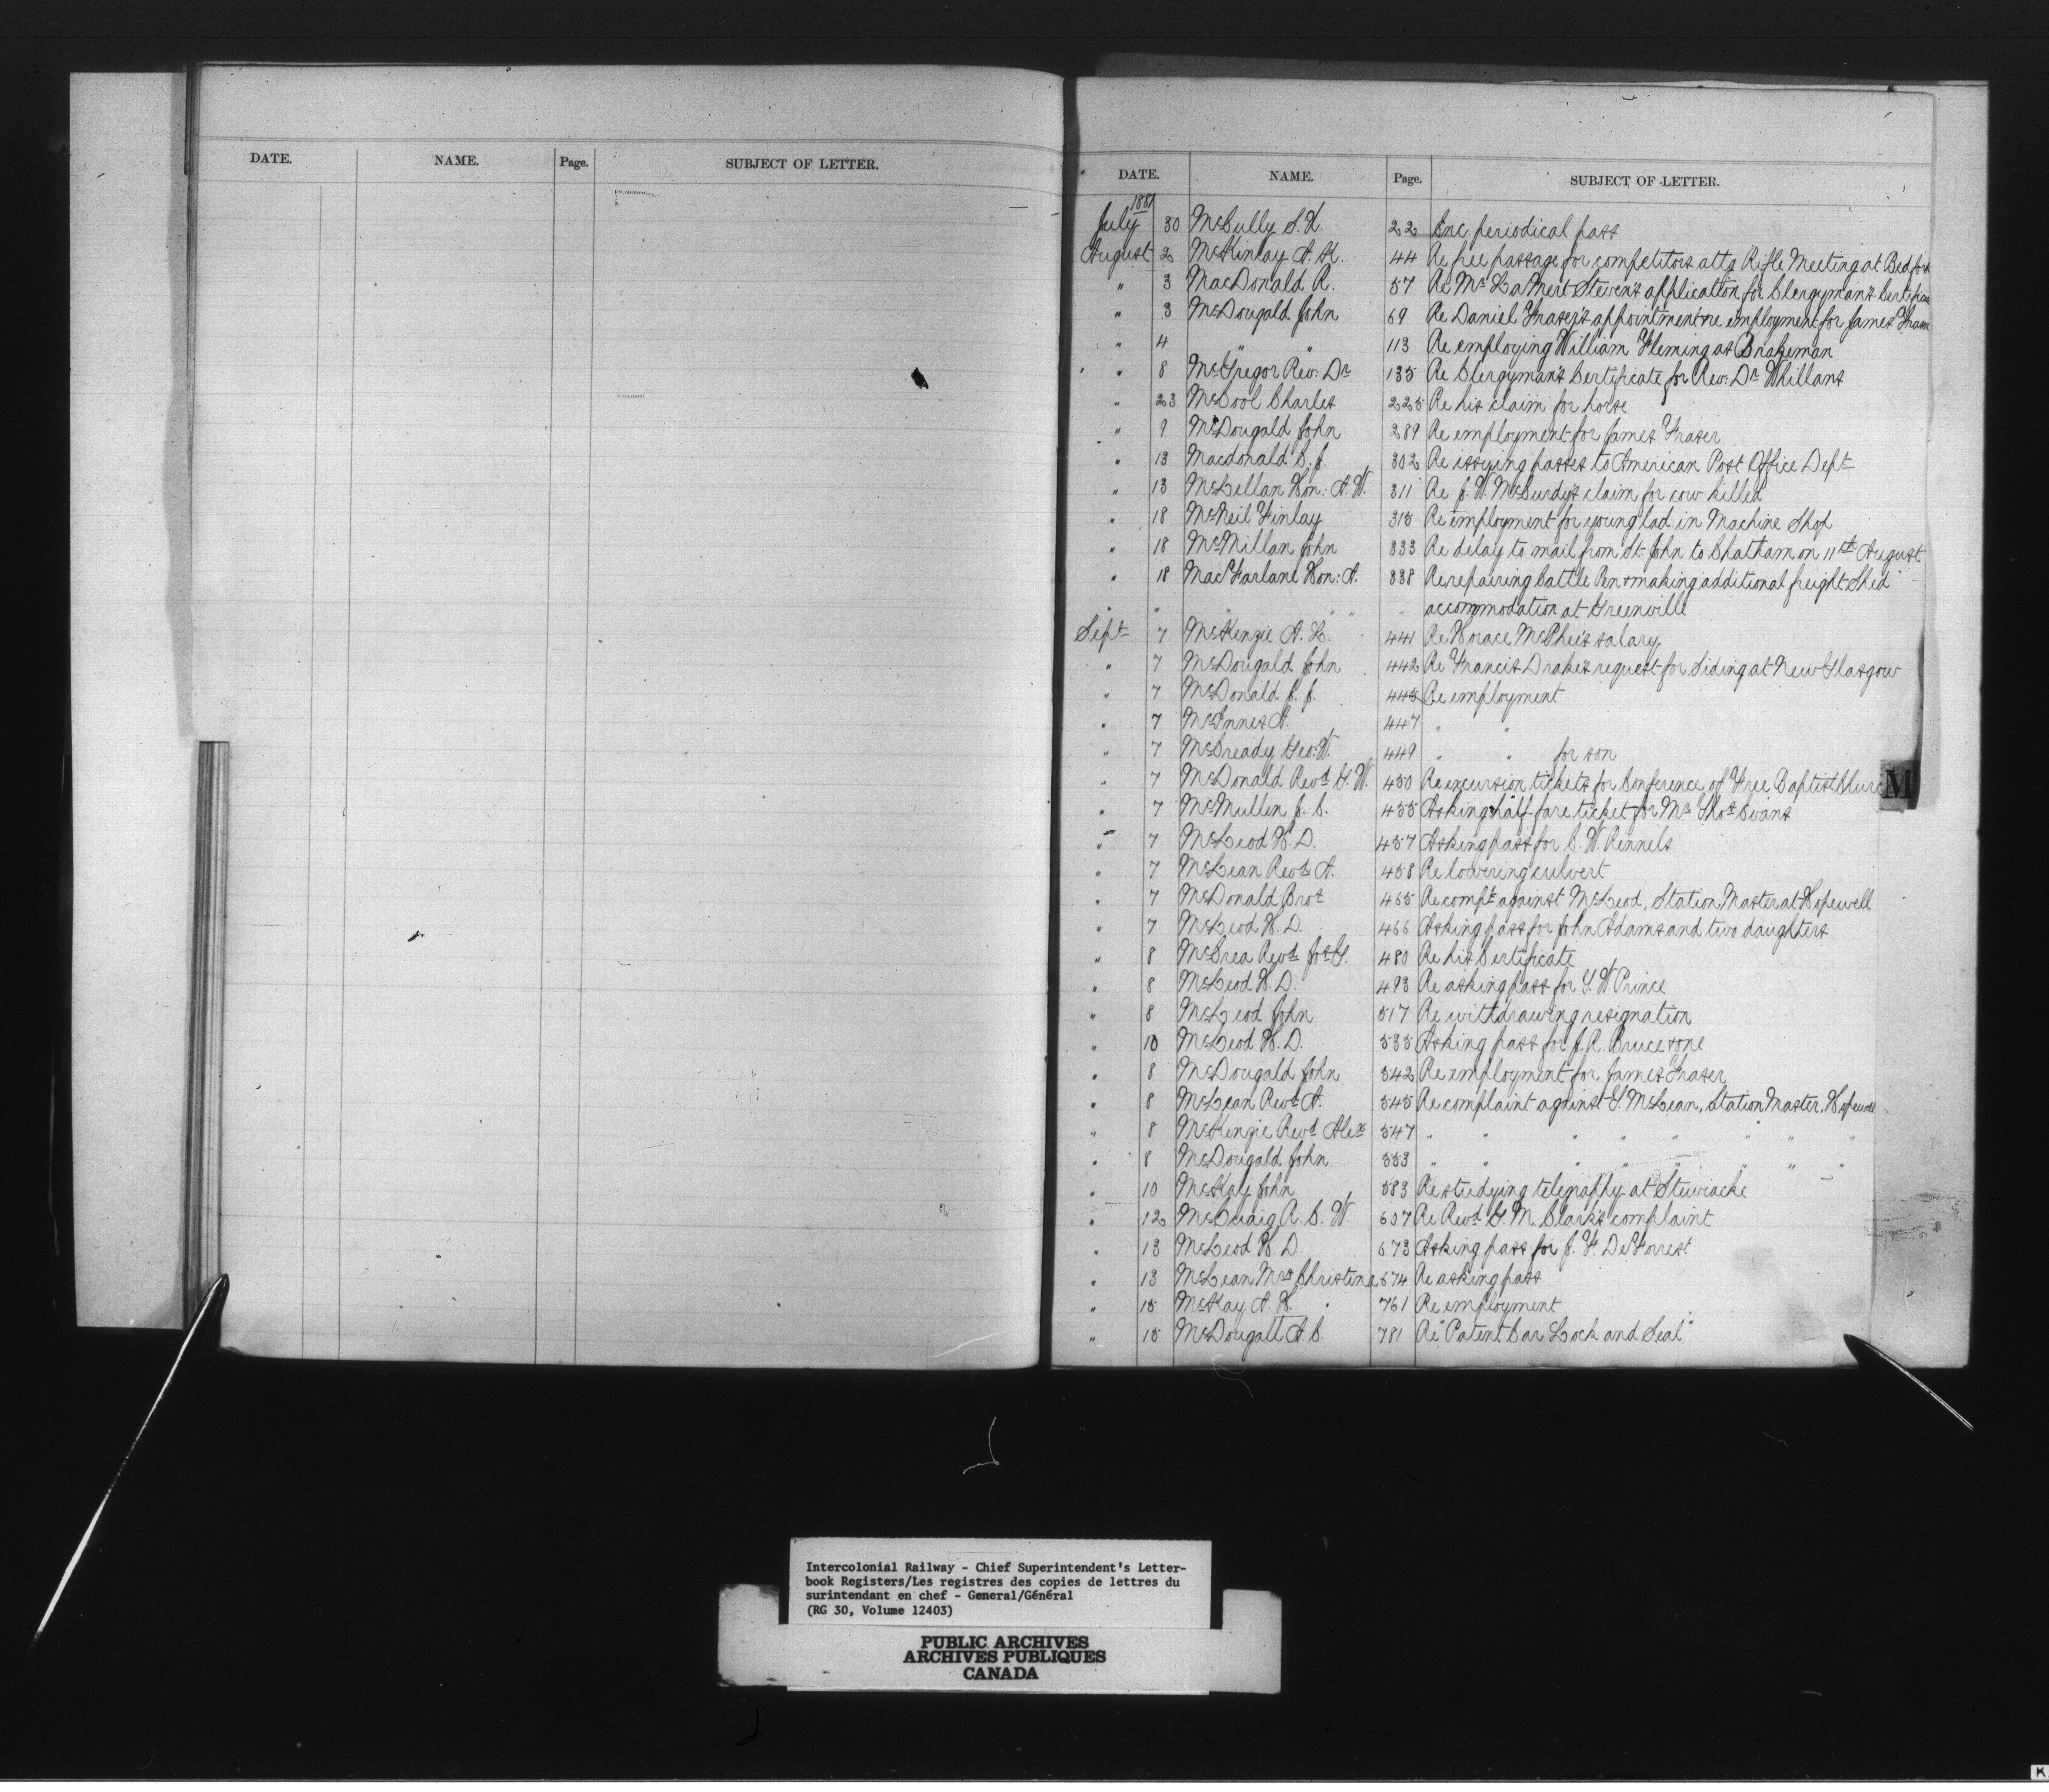 DATE. NAME. Page. SUBJECT OF LETTER.
DATE. NAME. Page. SUBJECT OF LETTER.
1881
July 30 McCully S. X. 22 Enc. periodical pass
August 2 McKinlay A. K. 44 Re free passage for competitors attg Rifle Meeting at Bedford
" 3 MacDonald R. 57 Re Mr LaMert Steven's application for Clergyman's Certificate
" 3 McDougald John 69 Re Daniel Fraser's appointment re employment for James Fraser
" 4 " " 113 Re employing William Fleming as Brakeman
" 8 McGregor Rev: Dr 135 Re Clergyman's Certificate for Rev: Dr Whillans
" 23 McCool Charles 225 Re his claim for horse
" 9 McDougald John 289 Re employment for James Fraser
" 13 Macdonald C. J. 302 Re issuing passes to American Post Office Dept
" 13 McLellan Hon: A. W. 311 Re J. W. McCurdy's claim for cow killed
" 18 McNeil Finlay 315 Re employment for young lad in Machine Shop
" 18 McMillan John 333 Re delay to mail from St. John to Chatham on 11th August
" 18 MacFarlane Hon: A. 338 Re repairing Cattle Pen + making additional freight Shed
" " " " " " accommodation at Greenville
Sept 7 McKenzie A. L. 441 Re Horace McPhee's salary
" 7 McDougald John 442 Re Francis Drake's request for Siding at New Glasgow
" 7 McDonald J. J. 445 Re employment
" 7 McInnes A. 447 " "
" 7 McCready Geo: W. 449 " " for son
" 7 McDonald Revd G. W. 450 Re excursion tickets for Conference of Free Baptist Church
M
" 7 McMullen J. C. 455 Asking half fare ticket for Mr Thos Evans
" 7 McLeod H. D. 457 Asking pass for C. W. Rennels
" 7 McLean Revd A. 458 Re lowering culvert
" 7 McDonald Bros 465 Re compt against McLeod, Station Master at Hopewell
" 7 McLeod H. D. 466 Asking pass for John Adams and two daughters
" 8 McCrea Revd Jos G. 480 Re his Certificate
" 8 McLeod H. D. 493 Re asking pass for G. W. Prince
" 8 McLeod John 517 Re withdrawing resignation
" 10 McLeod H. D. 535 Asking pass for J. R. Bruce + one
" 8 McDougald John 542 Re employment for James Fraser
" 8 McLean Revd A. 545 Re complaint against G. McLean, Station Master, Hopewell
" 8 McKenzie Revd Alex 547 " " " " " " " "
" 8 McDougald John 553 " " " " " " " "
" 10 McKay John 583 Re studying telegraphy at Stewiacke
" 12 McCuaig R. C. W. 607 Re Revd G. M. Clark's complaint
" 13 McLeod H. D. 673 Asking pass for J. F. DeForrest
" 13 McLean Mrs Christena 674 Re asking pass
" 15 McKay A. H. 761 Re employment
" 15 McDougall A. C. 781 Re "Patent Car Lock and Seal"
Intercolonial Railway - Chief Superintendent's Letter-
book Registers/Les registres des copies de lettres du
surintendant en chef - General/Général
(RG 30, Volume 12403)
PUBLIC ARCHIVES
ARCHIVES PUBLIQUES
CANADA
K